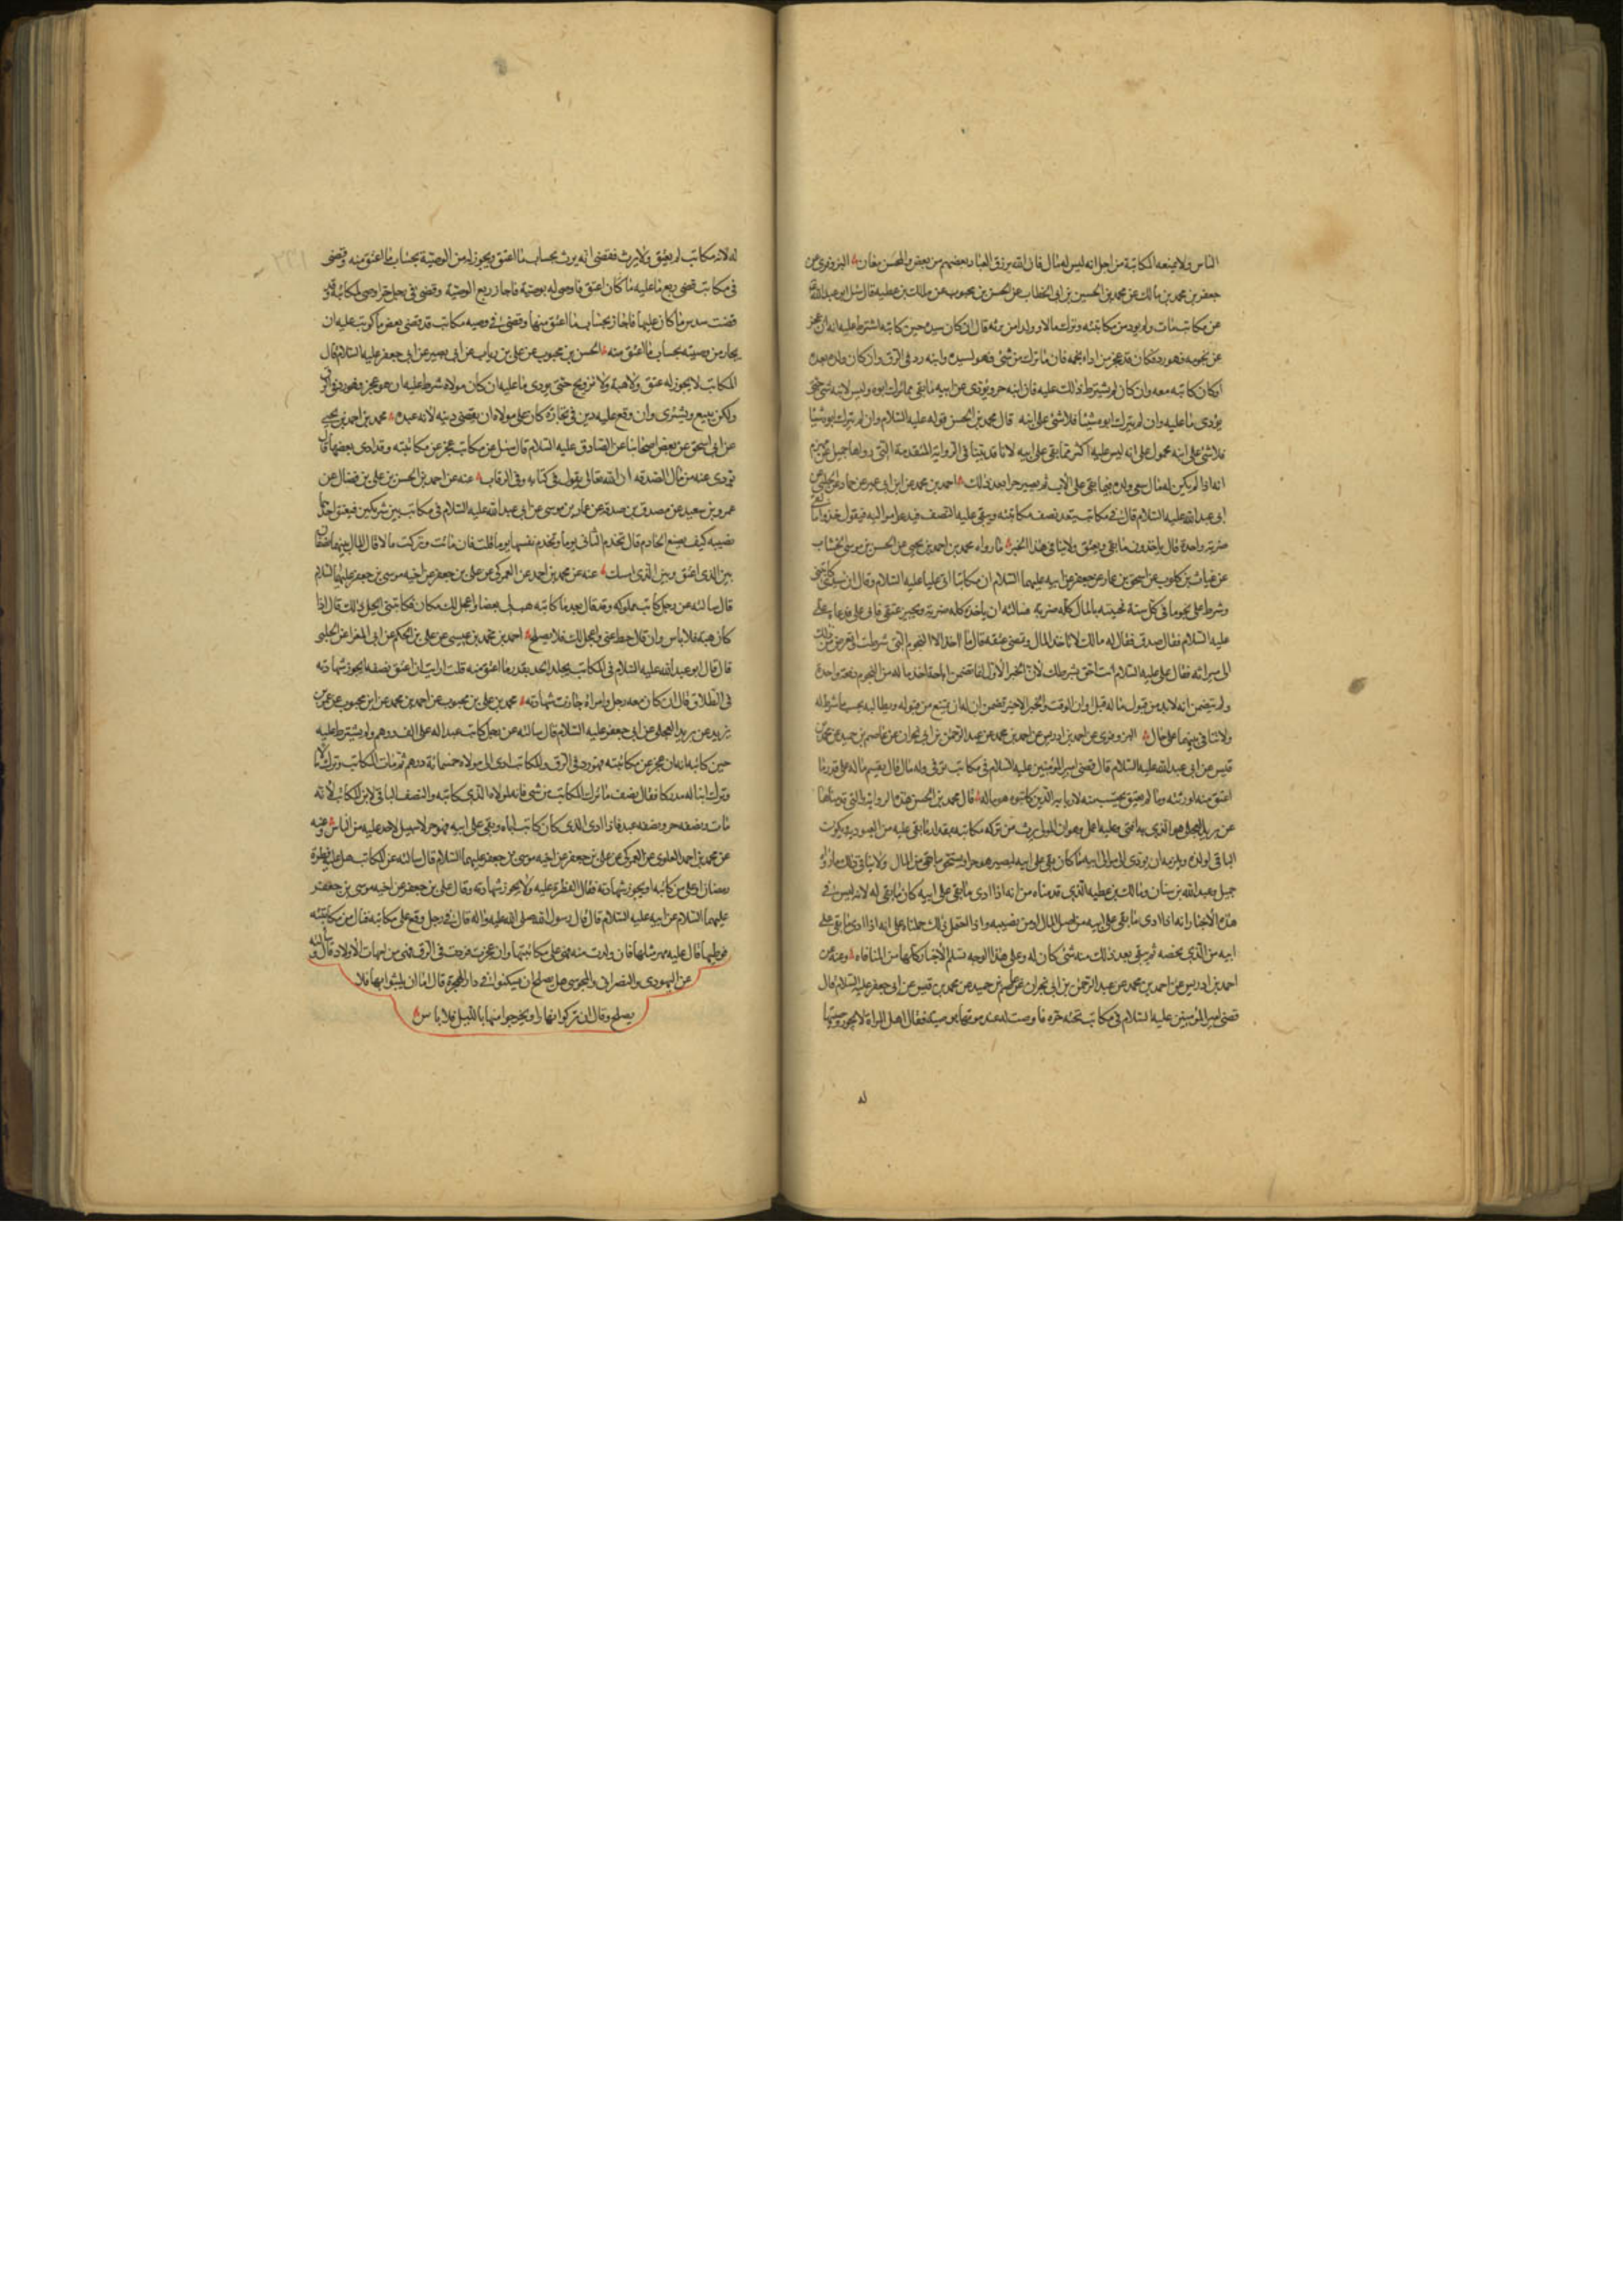 الناس ولا يمنعه المكاتبة من اجل انه ليس له مال فان الله يرزق العباد بعضهم من بعض والمحسن معان البزوفرى عن
جعفر بن محمد بن مالك عن محمد بن الحسين بن ابى الخطاب عن الحسن بن محبوب عن مالك بن عطيه قال سئل ابو عبد الله
عن مكاتب مات ولم يود من مكاتبته وترك مالا وولدا من يرثه قال ان كان سيده حين كاتبه اشترط عليه انه ان عجز
عن نجومه فهو رد وكان قد عجز عن اداء نجمه فان ما ترك من شئ فهو لسيده وابنه رد فى الرق وان كان ولده بعده
او كان كاتبه معه وان كان لم يشترط ذلك عليه فان ابنه حر ويؤدى عن ابيه ما بقى مما ترك ابوه وليس لابنه شئ حتى
يؤدى ما عليه وان لم يترك ابوه شيئا فلا شئ على ابنه قال محمد بن الحسن قوله عليه السلام وان لم يترك ابوه شيئا
فلا شئ على ابنه محمول على انه ليس عليه اكثر مما بقى على ابيه لانا قد بينا فى الرواية المتقدمة التى رواها جميل
انه اذا لم يكن له مال سعى ولده فيما بقى على الاب ثم يصير حرا بعد ذلك احمد بن محمد عن ابن ابى عمير عن حماد عن الحلبى عن
ابى عبد الله عليه السلام قال فى مكاتب ينقد نصف مكاتبته ويبقى عليه النصف فيدعو مواليه فيقول خذوا ما بقى
ضربة واحدة قال ياخذون ما بقى ويعتق ولا ينافى هذا الخبر ما رواه محمد بن احمد بن يحيى عن الحسن بن موسى الخشاب
عن غياث بن كلوب عن اسحق بن عمار عن جعفر عن ابيه عليهما السلام ان مكاتبا اتى عليا عليه السلام وقال ان سيدى كاتبنى
وشرط على نجوما فى كل سنة فجئته بالمال كله ضربة فسالته ان ياخذه كله ضربة ويجيز عتقى فابى على فدعاه على
عليه السلام فقال صدق فقال له مالك لا تاخذ المال وتمضى عتقه قال ما اخذ الا النجوم التى شرطت واتعرض من ذلك
الى ميراثه فقال على عليه السلام انت احق بشرطك لان الخبر الاول انما تضمن اباحة اخذ ماله من النجوم دفعة واحدة
ولم يتضمن انه لابد من قبول ماله قبل اوان الوقت والخبر الاخير تضمن ان له ان يمتنع من قبوله ويطالبه بحسب ما شرط له
ولا تنافى بينهما على حال البزوفرى عن احمد بن ادريس عن احمد بن محمد عن عبد الرحمن بن ابى نجران عن عاصم بن حميد عن محمد بن
قيس عن ابى عبد الله عليه السلام قال قضى امير المؤمنين عليه السلام فى مكاتب توفى وله مال قال يقسم ماله على قدر ما
اعتق منه لورثته وما لم يعتق يحتسب منه لاربابه الذين كاتبوه هو ماله قال محمد بن الحسن هذه الرواية والتى قدمناها
عن بريد العجلى هو الذى به افتى وعليه اعمل وهو ان المولى يرث من تركة مكاتبه بقدر ما بقى عليه من العبودية ويكون
الباقى لولده ويلزمه ان يؤدى الى موالى ابيه ما كان بقى على ابيه ليصير هو حرا ويستحق ما بقى من المال ولا ينافى ذلك ما رواه
جميل وعبد الله بن سنان ومالك بن عطيه الذى قدمناه من انه اذا ادى ما بقى على ابيه كان ما بقى له لانه ليس فى
هذه الاخبار انه اذا ادى ما بقى على ابيه من اصل المال او من نصيبه واذا احتمل ذلك حملناه على انه اذا ادى ما بقى على
ابيه من الذى يخصه ثم يبقى بعد ذلك منه شئ كان له وعلى هذا الوجه تسلم الاخبار كلها من المنافاه وعنه عن
احمد بن ادريس عن احمد بن محمد عن عبد الرحمن بن ابى نجران عن عاصم بن حميد عن محمد بن قيس عن ابى جعفر عليه السلام قال
قضى امير المؤمنين عليه السلام فى مكاتب تحته حره فاوصت له عند موتها بوصية فقال اهل المراة لا يجوز وصيتها
له
له لانه مكاتب لم يعتق ولا يرث فقضى انه يرث بحساب ما اعتق ويجوز له من الوصية بحساب ما اعتق منه وقضى
فى مكاتب قضى ربع ما عليه ما كان اعتق فاوصى له بوصية فاجاز ربع الوصية وقضى فى رجل حر اوصى لمكاتبة
قضت سدس ما كان عليها فاجاز بحساب ما اعتق منها وقضى فى وصيه مكاتب قد قضى بعض ما كوتب عليه ان
يجاز من وصيته بحساب ما اعتق منه الحسن بن محبوب عن على بن رياب عن ابى بصير عن ابى جعفر عليه السلام قال
المكاتب لا يجوز له عتق ولا هبة ولا تزويج حتى يودى ما عليه ان كان مولاه شرط عليه ان هو عجز فهو رد فى الرق
ولكن يبيع ويشترى وان وقع عليه دين فى تجارة كان على مولاه ان يقضى دينه لانه عبده محمد بن احمد بن يحيى
عن ابى اسحق عن بعض اصحابنا عن الصادق عليه السلام قال سئل عن مكاتب عجز عن مكاتبته وقد ادى بعضها قال
يودى عنه من مال الصدقه ان الله تعالى يقول فى كتابه وفى الرقاب عنه عن احمد بن الحسن بن على بن فضال عن
عمرو بن سعيد عن مصدق بن صدقة عن عمار بن موسى عن ابى عبد الله عليه السلام فى مكاتب بين شريكين فيعتق احدهما
نصيبه كيف يصنع الخادم قال تخدم الثانى يوما وتخدم نفسها يوما قلت فان ماتت وتركت مالا قال المال بينهما نصفان
بين الذى اعتق وبين الذى امسك عنه عن محمد بن احمد عن العمركى عن على بن جعفر عن اخيه موسى بن جعفر عليهما السلام
قال سالته عن رجل كاتب مملوكه وقد قال بعد ما كاتبه هب لى بعضا واعجل لك مكان مكاتبتى ايحل ذلك قال اذا
كان هبة فلا باس وان قال حط عنى واعجل لك فلا يصلح احمد بن محمد بن عيسى عن على بن الحكم عن ابى المغرا عن الحلبى
قال قال ابو عبد الله عليه السلام فى المكاتب يجلد الحد بقدر ما اعتق منه قلت ارايت ان اعتق نصفه ايجوز شهادته
فى الطلاق قال ان كان معه رجل وامراة جازت شهادته محمد بن على بن محبوب عن احمد بن محمد عن ابن محبوب عن عمر بن
يزيد عن بريد العجلى عن ابى جعفر عليه السلام قال سالته عن رجل كاتب عبدا له على الف درهم ولم يشترط عليه
حين كاتبه انه ان عجز عن مكاتبته فهو رد فى الرق والمكاتب ادى الى مولاه خمسمائة درهم ثم مات المكاتب وترك مالا
وترك ابنا له مدركا فقال نصف ما ترك المكاتب من شئ فانه لمولاه الذى كاتبه والنصف الباقى لابن المكاتب لانه
مات ونصفه حر ونصفه عبد فاذا ادى الذى كان كاتب اباه وبقى على ابيه فهو حر لا سبيل لاحد عليه من الناس وعنه
عن محمد بن احمد العلوى عن العمركى عن على بن جعفر عن اخيه موسى بن جعفر عليهما السلام قال سالته عن المكاتب هل عليه فطرة
رمضان او على من كاتبه او يجوز شهادته فقال الفطرة عليه ولا يجوز شهادته وقال على بن جعفر عن اخيه موسى بن جعفر
عليهما السلام عن ابيه عليه السلام قال قال رسول الله صلى الله عليه واله قال فى رجل وقع على مكاتبه فنال من مكاتبته
فوطيها قال عليه مهر مثلها فان ولدت منه فهى على مكاتبتها وان عجزت فردت فى الرق فهى من امهات الاولاد قال وسالته
عن اليهودى والنصرانى والمجوسى هل يصلح ان يسكنوا فى دار الهجرة قال اما ان يلبثوا بها فلا
يصلح وقال ان تركوا نهارا ويخرجوا منها بالليل فلا باس